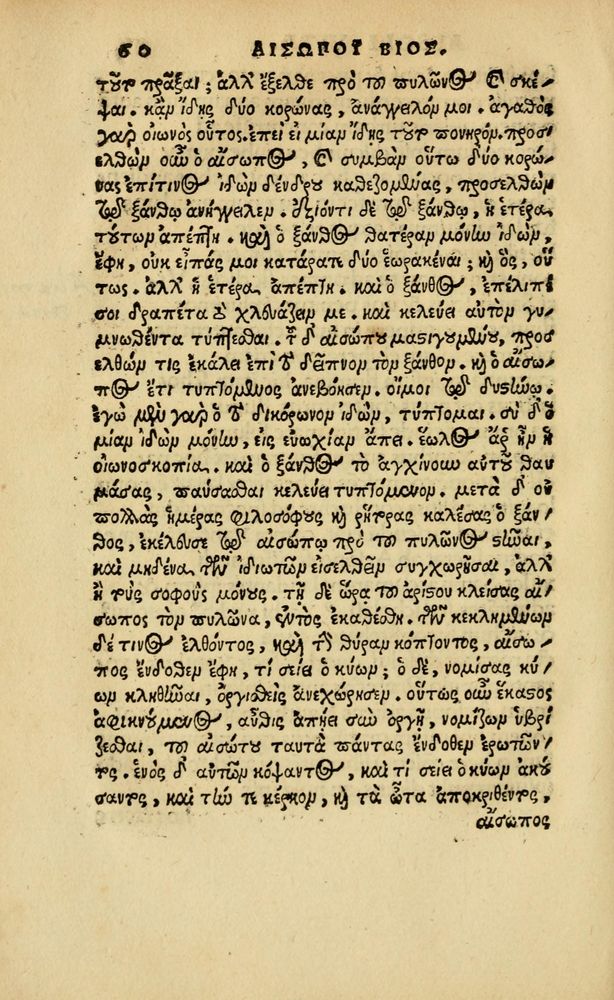 60 ΑΙΣΩΠΟΥ ΒΙΟΣ.
τοῦτο πρᾶξαι; ἀλλ' ἔξελθε πρὸ τοῦ πυλῶνος καὶ σκέ/
ψαι. κἂν ἴδῃς δύο κορώνας, ἀνάγγειλόν μοι. ἀγαθὸς
γὰρ οἰωνὸς οὗτος. ἐπεὶ εἰ μίαν ἴδῃς τοῦτο πονηρόν. προσ/
ελθὼν οὖν ὁ αἴσωπος, καὶ συμβὰν οὕτω δύο κορώ/
νας ἐπί τινος ἰδὼν δένδρου καθεζομένας, προσελθὼν
τῷ ξάνθῳ ἀνήγγειλεν. ἐξιόντι δὲ τῷ ξάνθῳ, ἡ ἑτέρα
τούτων ἀπέπτη. καὶ ὁ ξάνθος θατέραν μόνην ἰδὼν,
ἔφη, οὐκ εἶπάς μοι κατάρατε δύο ἑωρακέναι; καὶ ὃς, οὕ
τως. ἀλλ' ἡ ἑτέρα ἀπέπτη. καὶ ὁ ξάνθος, ἐπέλιπέ
σοι δραπέτα τὸ χλευάζειν με. καὶ κελεύει αὐτὸν γυ/
μνωθέντα τύπτεσθαι. τοῦ δ' αἰσώπου μαστιγουμένου, προσ
ελθών τις ἐκάλει ἐπὶ τὸ δεῖπνον τὸν ξάνθον. καὶ ὁ αἴσω/
πος ἔτι τυπτόμενος ἀνεβόησεν. οἴμοι τῷ δυστήνῳ.
ἐγὼ μὲν γὰρ ὁ τὸ δικόρωνον ἰδὼν, τύπτομαι. σὺ δ' ὁ
μίαν ἰδὼν μόνην, εἰς εὐωχίαν ἄπει. ἕωλος ἄρ' ἦν ἡ
οἰωνοσκοπία. καὶ ὁ ξάνθος τὸ ἀγχίνουν αὐτοῦ θαυ
μάσας, παύσασθαι κελεύει τυπτόμενον. μετὰ δ' οὐ
πολλὰς ἡμέρας φιλοσόφους καὶ ῥήτορας καλέσας ὁ ξάν/
θος, ἐκέλευσε τῷ αἰσώπῳ πρὸ τοῦ πυλῶνος στῆναι,
καὶ μηδένα τῶν ἰδιωτῶν εἰσελθεῖν συγχωρῆσαι, ἀλλ'
ἢ τοὺς σοφοὺς μόνους. τῇ δὲ ὥρᾳ τοῦ ἀρίστου κλείσας αἴ
σωπος τὸν πυλῶνα, ἐντὸς ἐκαθέσθη. τῶν κεκλημένων
δέ τινος ἐλθόντος, καὶ τὴν θύραν κόπτοντος, αἴσω/
πος ἔνδοθεν ἔφη, τί σείει ὁ κύων; ὁ δὲ, νομίσας κύ/
ων κληθῆναι, ὀργισθεὶς ἀνεχώρησεν. οὕτως οὖν ἕκαστος
ἀφικνούμενος, αὖθις ἀπῄει σὺν ὀργῇ, νομίζων ὑβρί/
ζεσθαι, τοῦ αἰσώπου ταυτὰ πάντας ἔνδοθεν ἐρωτῶν/
τος. ἑνὸς δ' αὐτῶν κόψαντος, καὶ τί σείει ὁ κύων ἀκού
σαντος, καὶ τήν τε κέρκον, καὶ τὰ ὦτα ἀποκριθέντος,
αἴσωπος